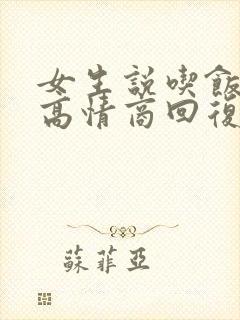 女生説喫飯
高情商回復
蘇菲亞